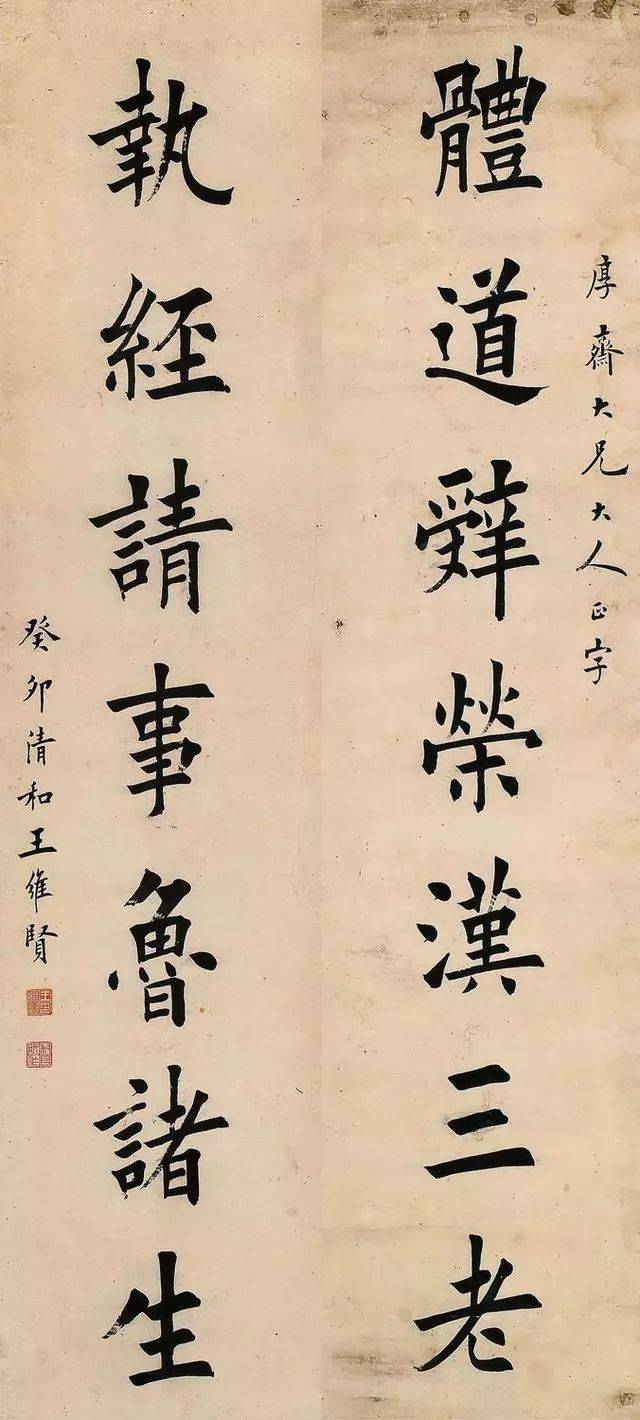 厚齋大兄大人正字
體道辭榮漢三老
執經請事魯諸生
癸卯清和王維賢